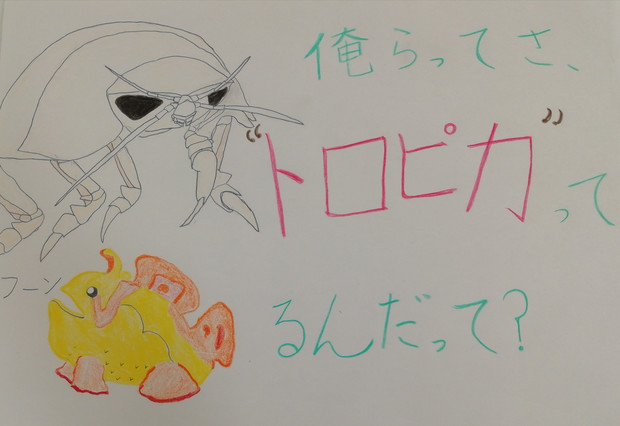 俺らってさ、
“トロピカ”って
るんだって?
フーン